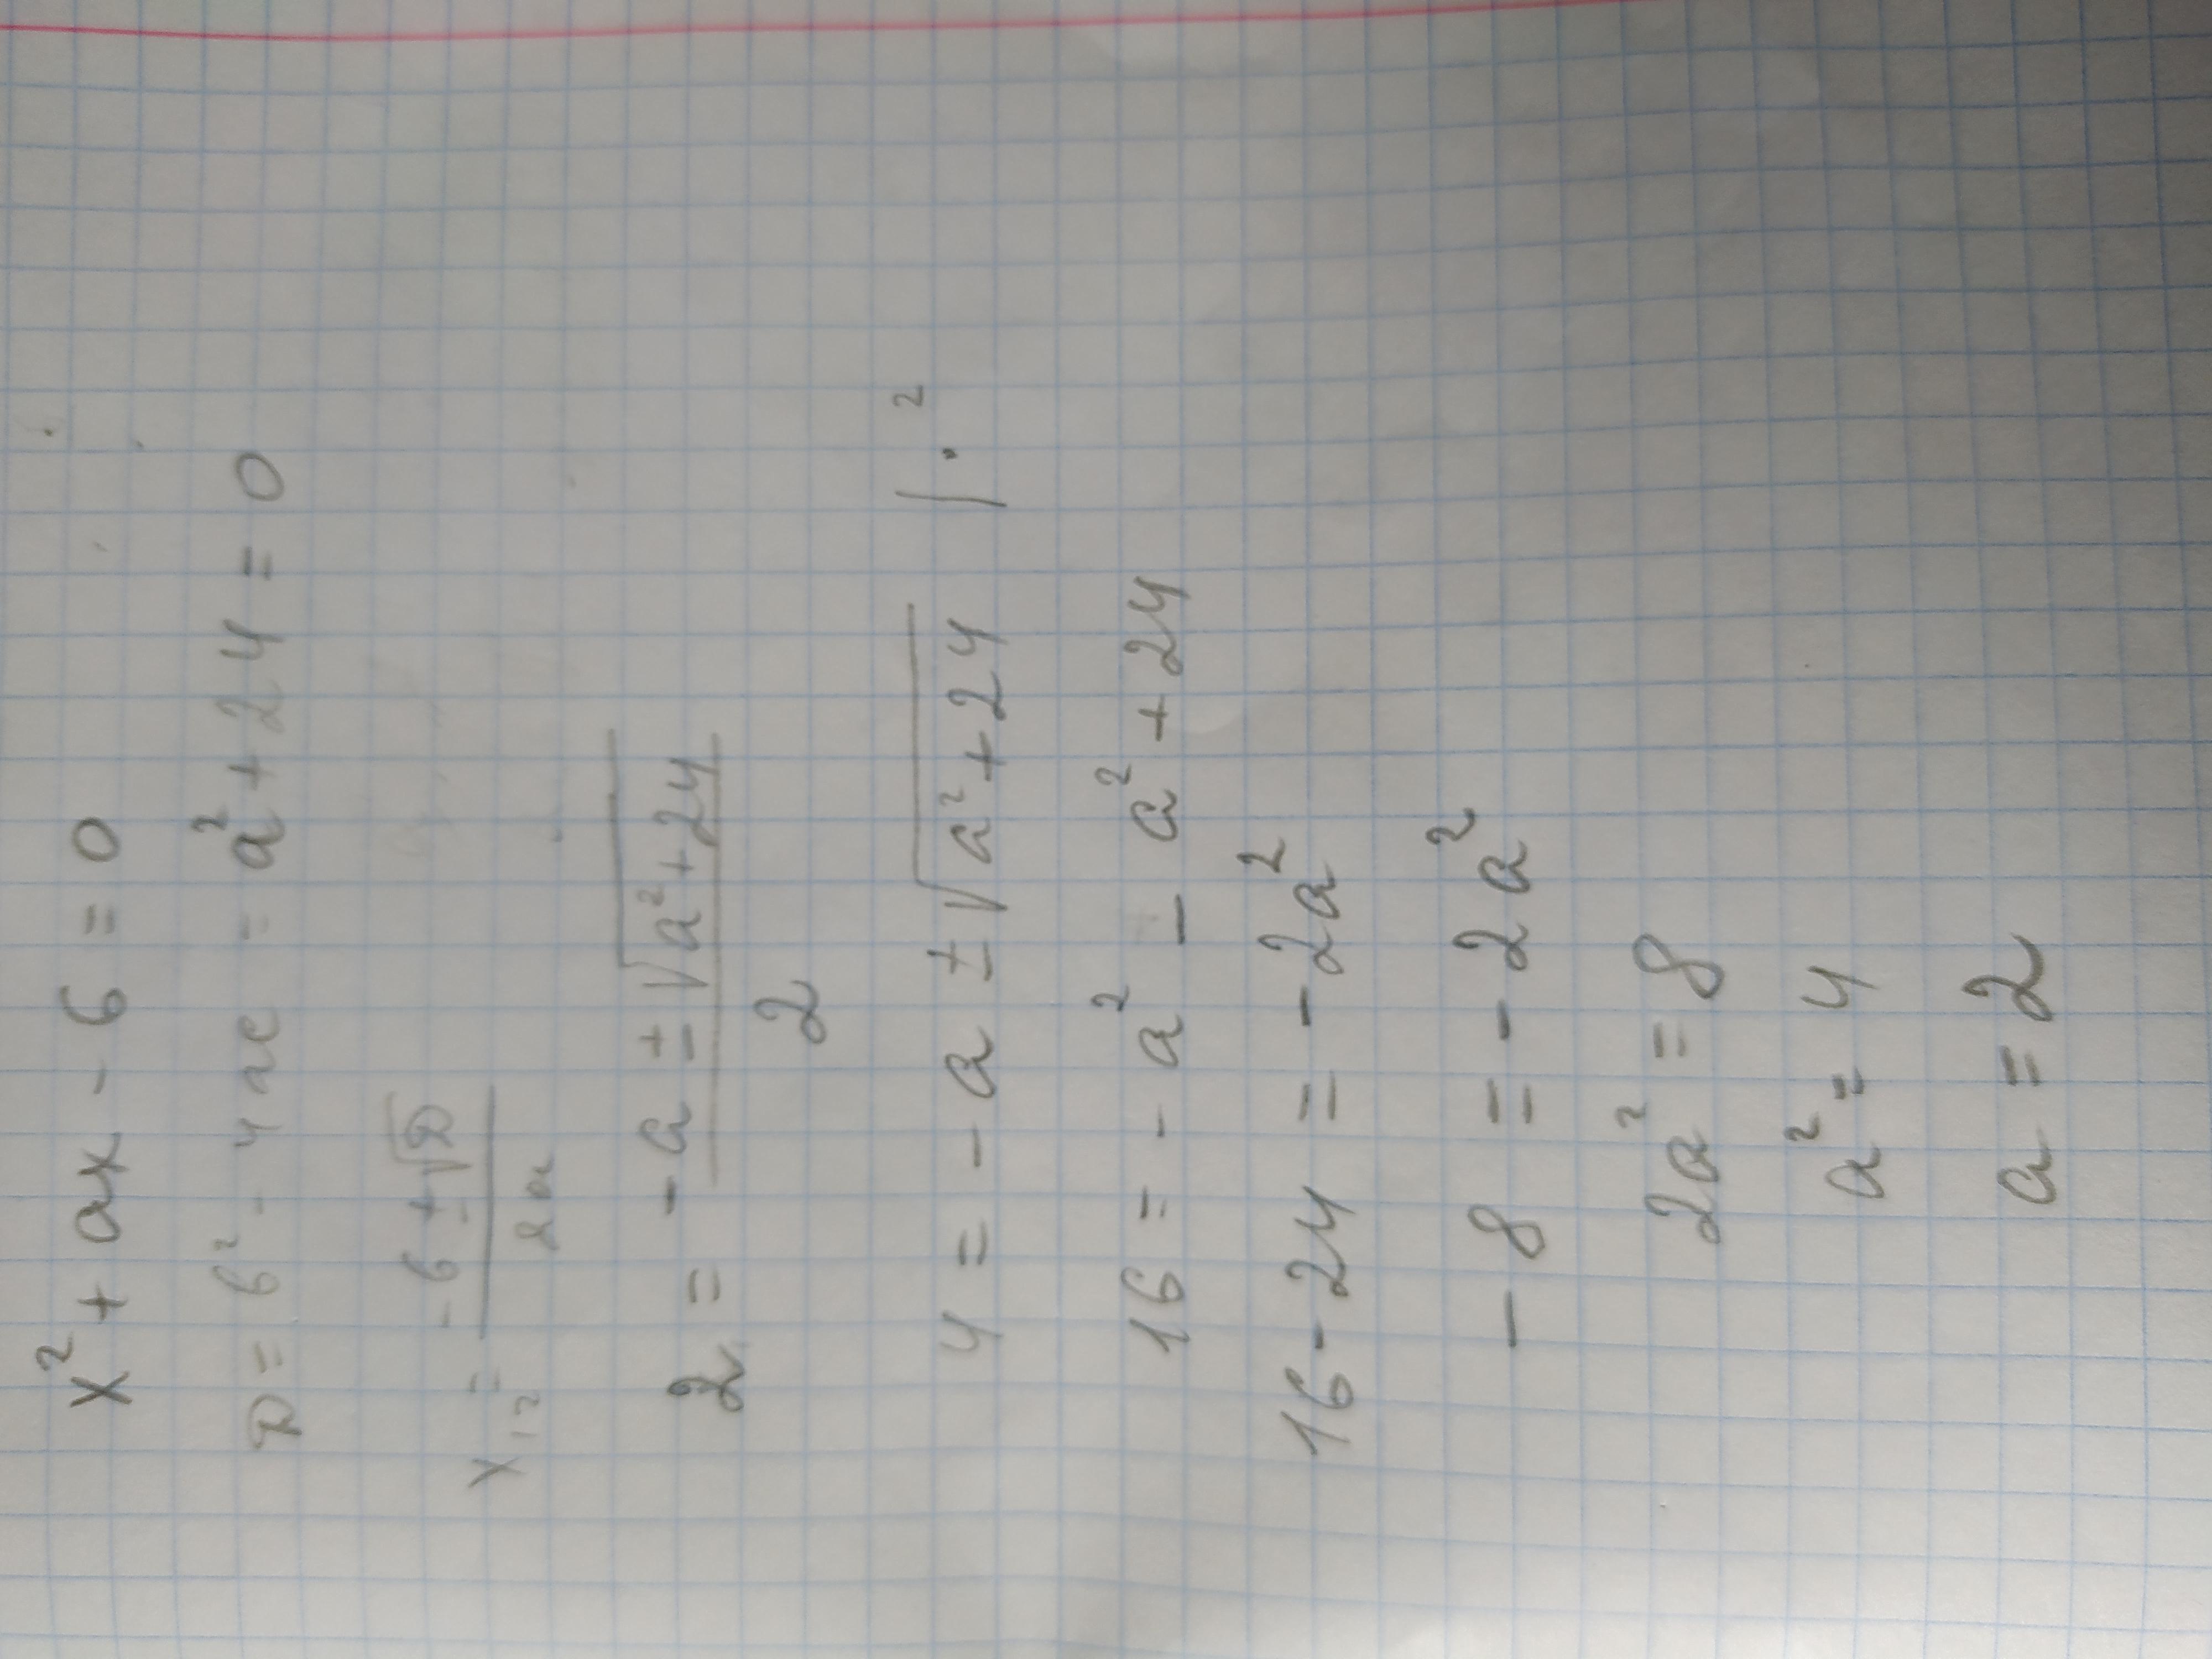 x² + ax - 6 = 0
D = b² - 4ac = a² + 24 = 0
x₁₂ = (-b ± √D) / 2a
2 = (-a ± √(a² + 24)) / 2
4 = -a ± √(a² + 24) | · ²
16 = -a² - a² + 24
16 - 24 = -2a²
-8 = -2a²
2a² = 8
a² = 4
a = 2